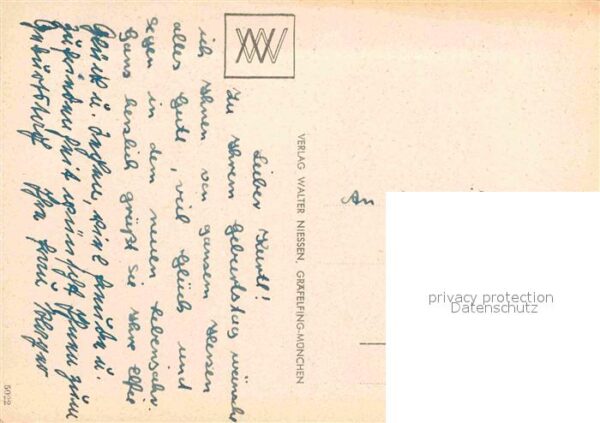 Lieber Kurtl!
Zu Ihrem Geburtstag wünsche
ich Ihnen von ganzem Herzen
alles Gute, viel Glück und
Segen in dem neuen Lebensjahr.
Ganz herzlich grüßt Sie Ihre Elfie
Glück u. Segen, viel Freude u.
Zufriedenheit wünscht Ihnen zum
Geburtstage Ihre Frau
VERLAG WALTER NIESSEN, GRÄFELFING-MÜNCHEN
An
5022
privacy protection
Datenschutz